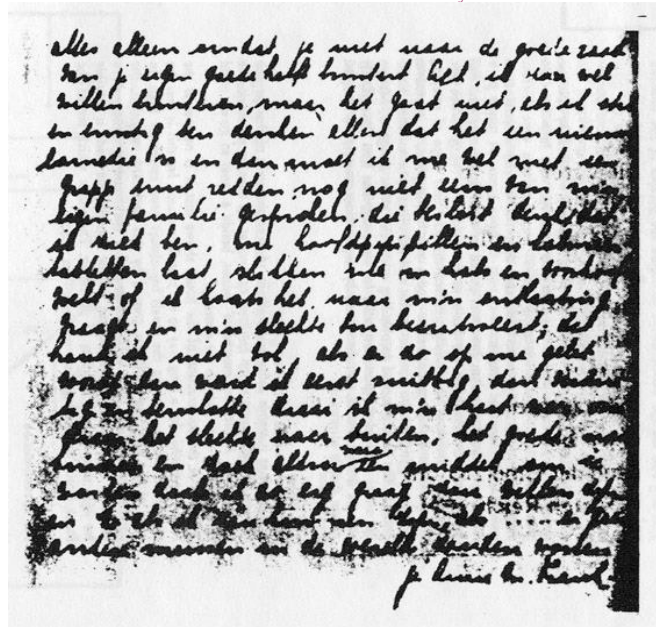 alles alleen omdat je niet naar de goede raad
van je eigen goede helft luistert. Zeg, ik zou wel
willen luisteren, maar het gaat niet, als ik stil
en ernstig ben denken allen dat het een nieuwe
comedie is en dan moet ik me wel met een
grapje eruit redden, nog niet eens van m'n
eigen familie gesproken, die beslist denkt dat
ik ziek ben, me hoofdpijnpillen en
tabletten laat slikken me in hals en voorhoofd
voelt of ik koorts heb, naar m'n ontlasting
vraagt en m'n slechte bui becritiseert; dat
houd ik niet vol, als er zo op me gelet
wordt dan word ik eerst snibbig, dan
en tenslotte draai ik m'n hart weer om
draai het slechte naar buiten, het goede naar
binnen en zoek aldoor naar een middel om te
worden zoals ik zo erg graag zou willen zijn
en zoals ik zou kunnen zijn, als .... er geen
andere mensen in de wereld zouden wonen
je Anne M. Frank.